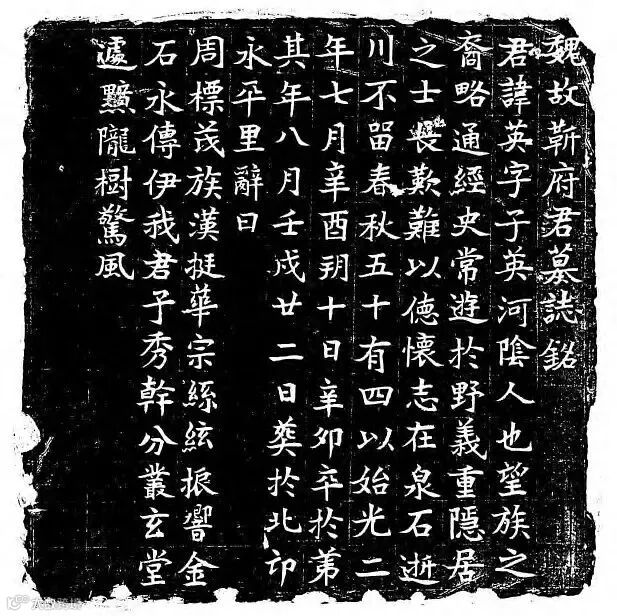 魏故靳府君墓誌銘
君諱英字子英河陰人也望族之
裔略通經史常遊於野義重隱居
之士喪歎難以德懷志在泉石逝
川不留春秋五十有四以始光二
年七月辛酉朔十日辛卯卒於第
其年八月壬戌廿二日葬於北邙
永平里辭曰
周標茂族漢挺華宗絲絃振響金
石永傳伊我君子秀幹分叢玄堂
遽黯隴樹驚風